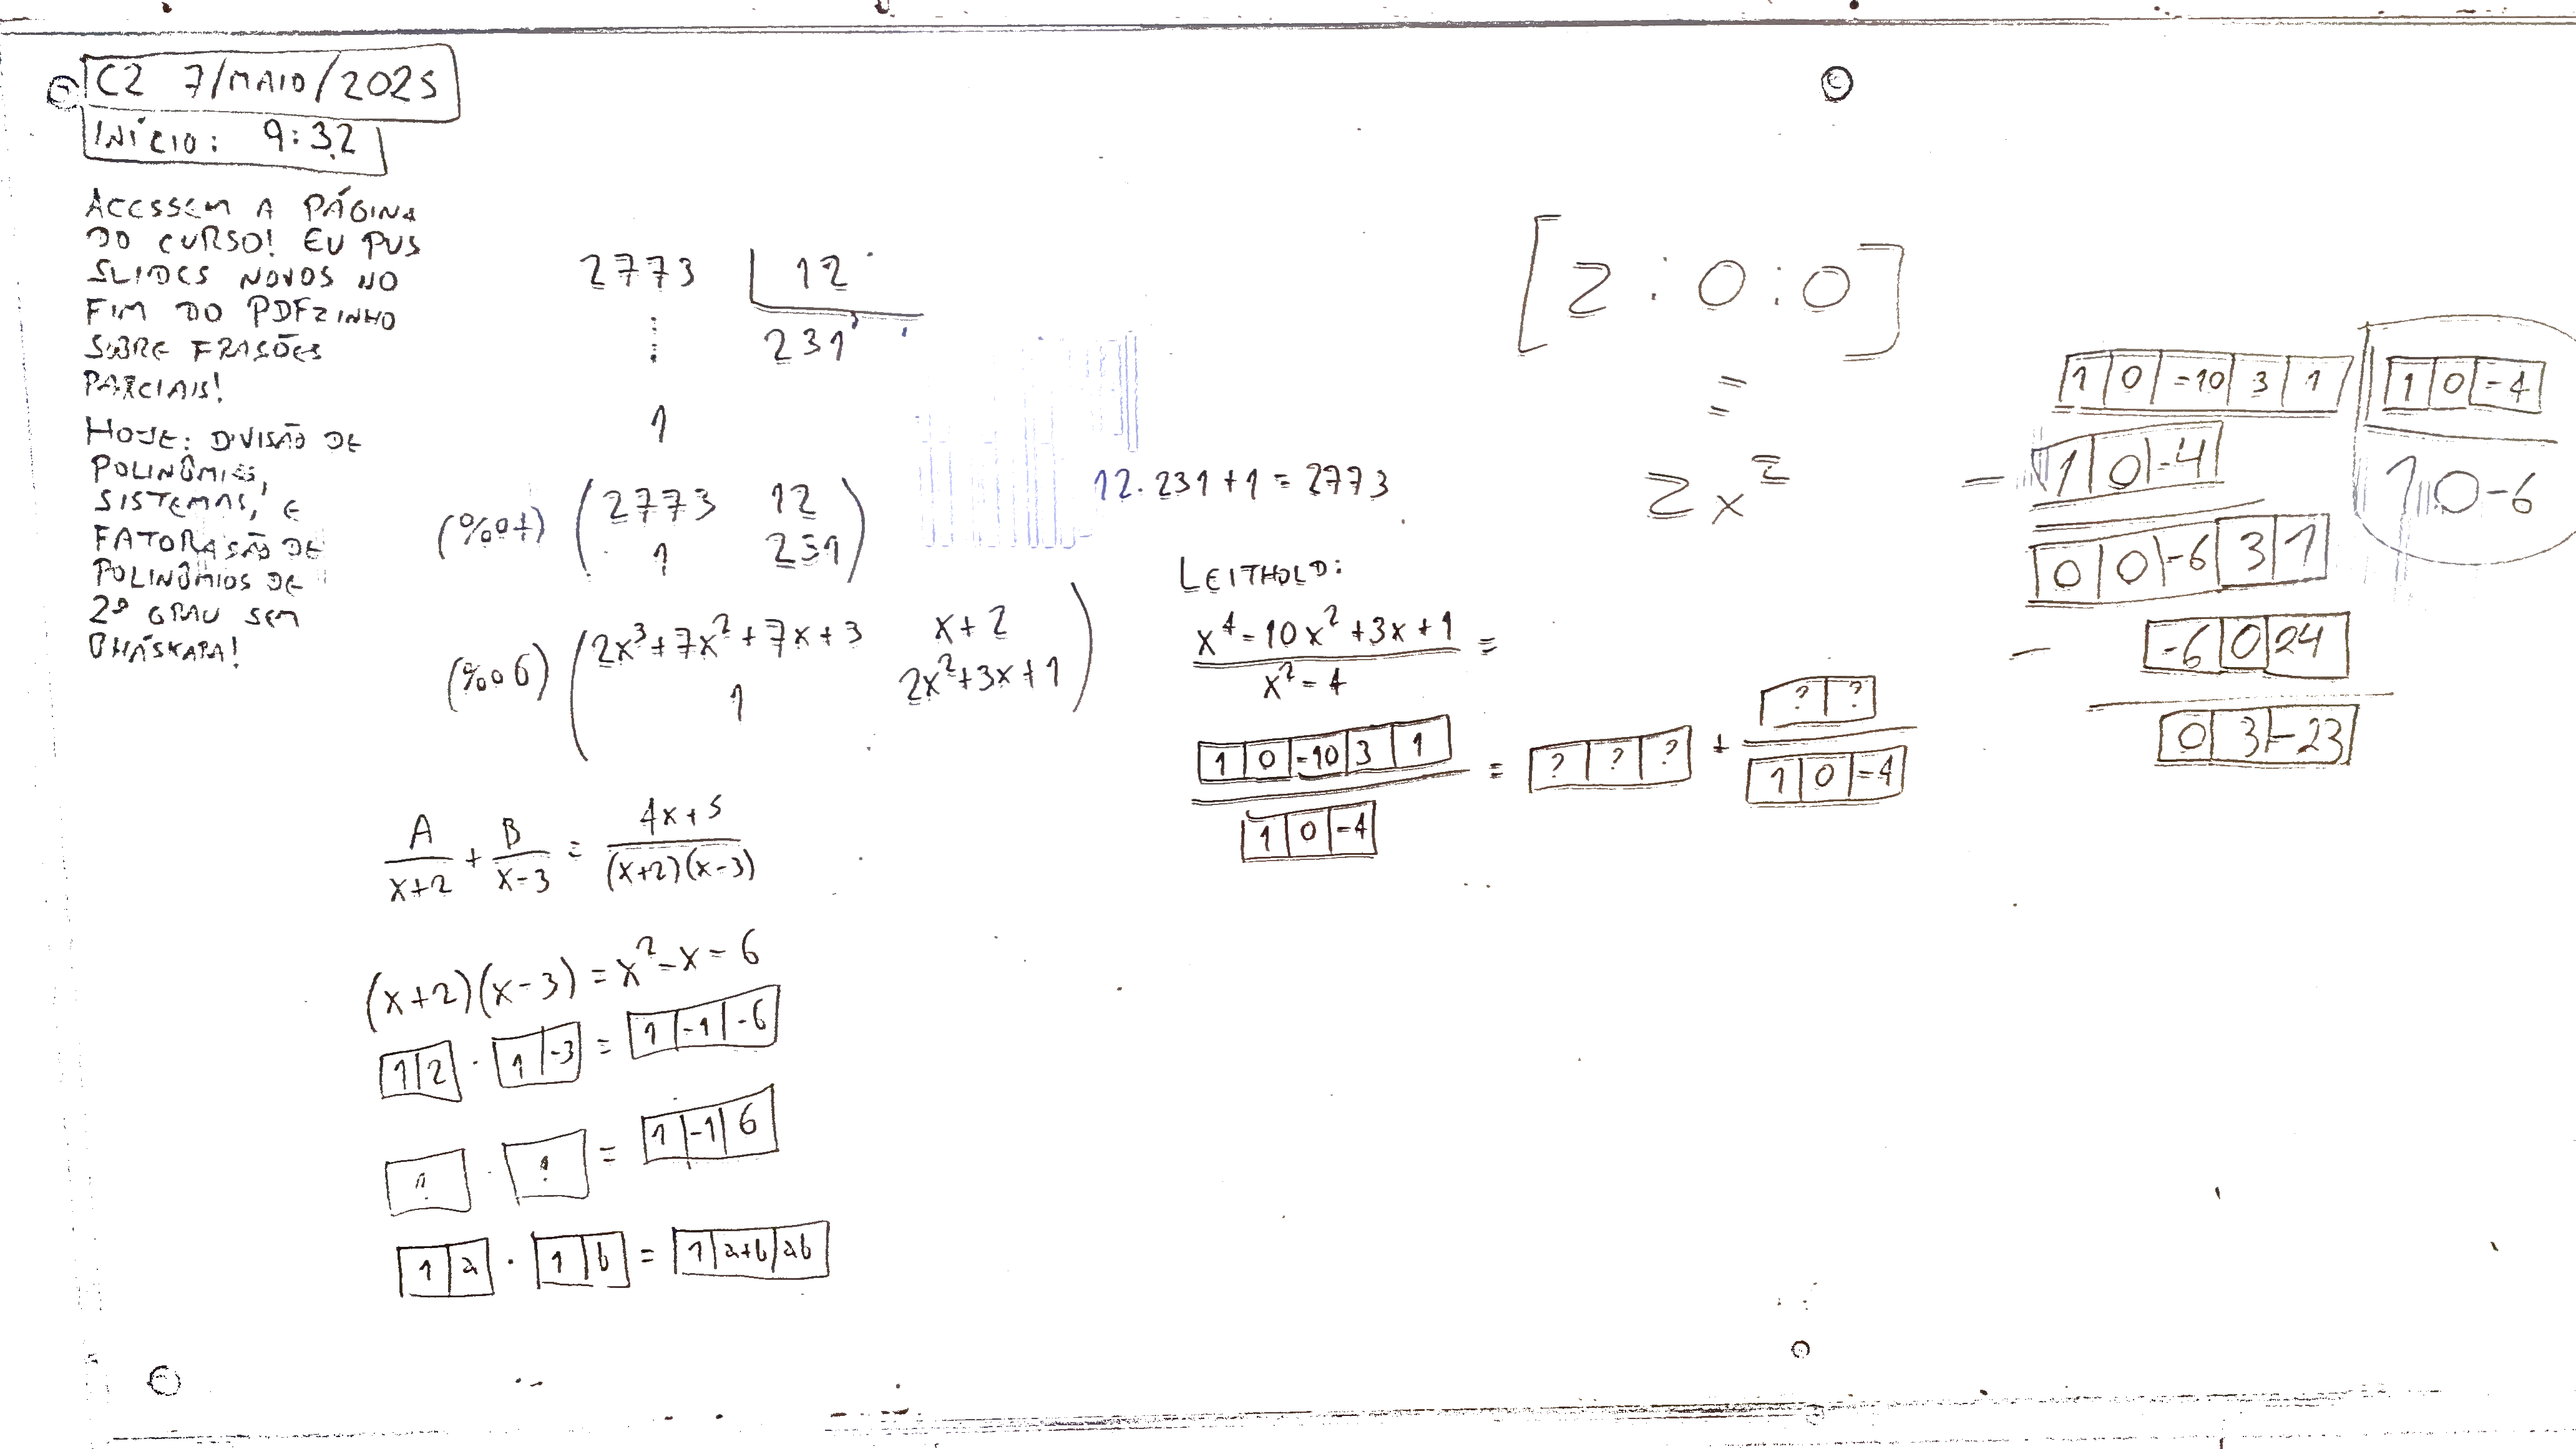 C2 7/MAIO/2025
INÍCIO: 9:32
ACESSEM A PÁGINA
DO CURSO! EU PUS
SLIDES NOVOS NO
FIM DO PDFZINHO
SOBRE FRAÇÕES
PARCIAIS!
HOJE: DIVISÃO DE
POLINÔMIOS,
SISTEMAS, E
FATORAÇÃO DE
POLINÔMIOS DE
2º GRAU SEM
BHÁSKARA!
2773 | 12
⋮ 231
1
(%o7) ( 2773 12
1 231 )
(%o6) ( 2x³+7x²+7x+3 x+2
1 2x²+3x+1 )
A/(x+2) + B/(x-3) = (4x+5)/((x+2)(x-3))
(x+2)(x-3) = x²-x-6
|1|2| · |1|-3| = |1|-1|-6|
|?| · |?| = |1|-1|6|
|1|a| · |1|b| = |1|a+b|ab|
12·231+1=2773
LEITHOLD:
(x⁴-10x²+3x+1)/(x²-4) =
|1|0|-10|3|1| / |1|0|-4| = |?|?|?| + |?|?| / |1|0|-4|
[2:0:0]
=
2x²
|1|0|-10|3|1| |1|0|-4|
- |1|0|-4| 1 0 -6
|0|0|-6|3|1|
- |-6|0|24|
|0|3|-23|